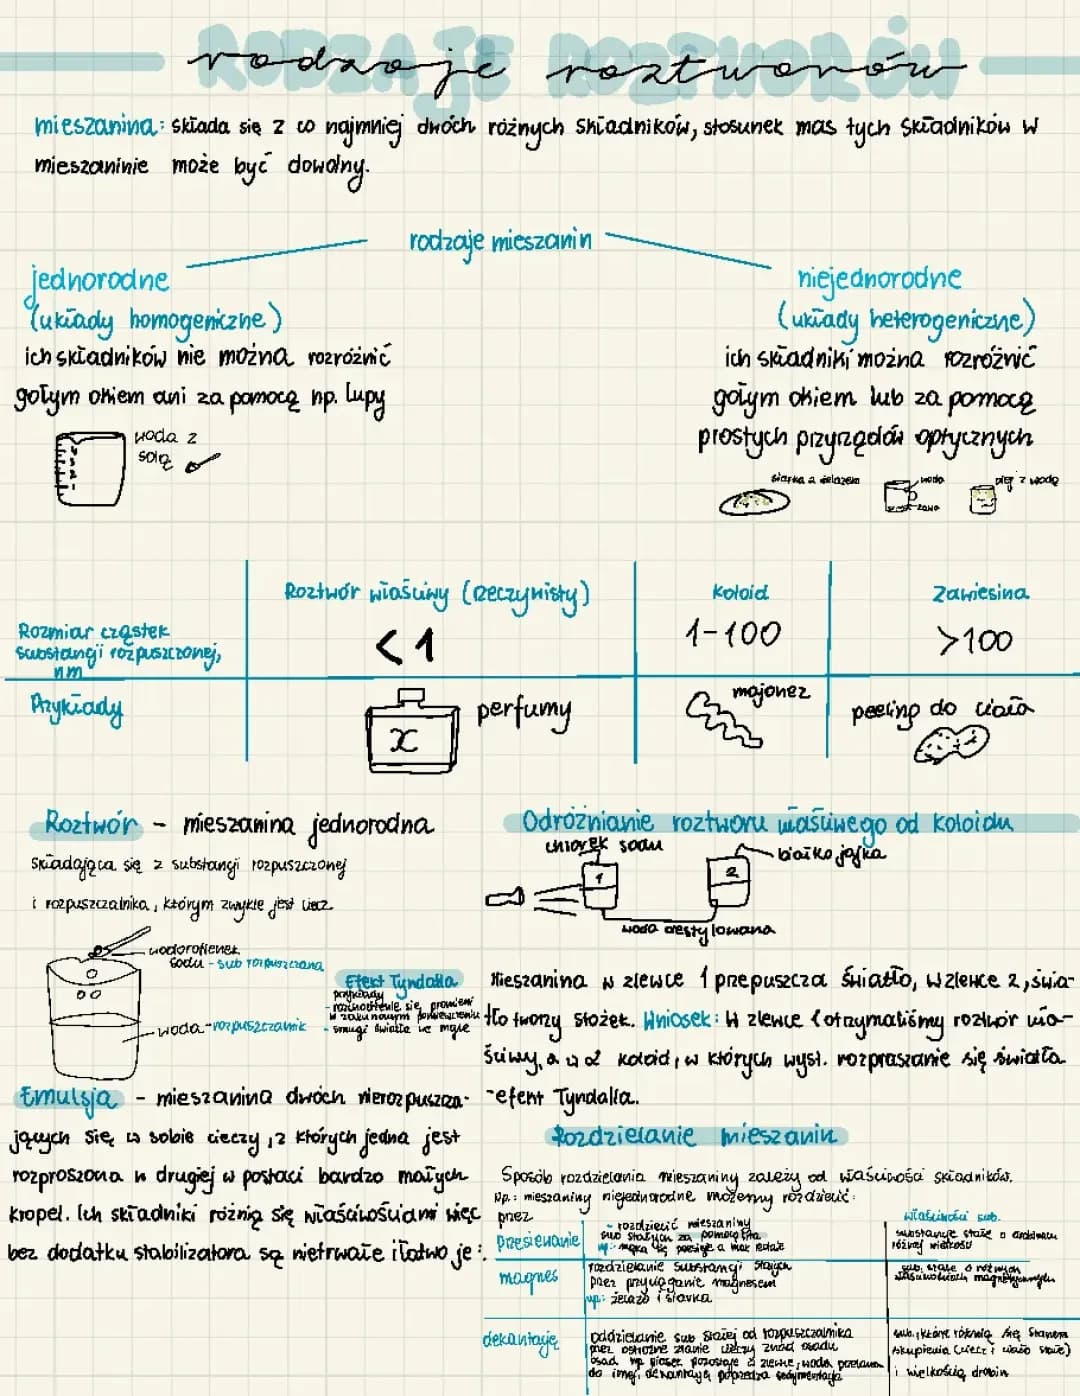 RODZAJE ROZTWORÓW
rodzaje roztworów
mieszanina: składa się z co najmniej dwóch różnych składników, stosunek mas tych składników w
mieszaninie może być dowolny.
rodzaje mieszanin
jednorodne
(układy homogeniczne)
ich składników nie można rozróżnić
gołym okiem ani za pomocą np. lupy
woda z
solą
niejednorodne
(układy heterogeniczne)
ich składniki można rozróżnić
gołym okiem lub za pomocą
prostych przyrządów optycznych
siarka z żelazem
woda
olej z wodą
Roztwór właściwy (rzeczywisty)
Koloid
Zawiesina
Rozmiar cząstek
substancji rozpuszczonej,
nm
<1
1-100
>100
Przykłady
x
perfumy
majonez
peeling do ciała
Roztwór - mieszanina jednorodna
składająca się z substancji rozpuszczonej
i rozpuszczalnika, którym zwykle jest ciecz
wodorotlenek
sodu - sub rozpuszczana
woda - rozpuszczalnik
Efekt Tyndalla
przykłady
- smugi światła we mgle
Emulsja - mieszanina dwóch nierozpuszcza-
jących się w sobie cieczy, z których jedna jest
rozproszona w drugiej w postaci bardzo małych
kropel. Ich składniki różnią się właściwościami więc
bez dodatku stabilizatora są nietrwałe i łatwo je :
Odróżnianie roztworu właściwego od koloidu
chlorek sodu
białko jajka
1
2
woda destylowana
Mieszanina w zlewce 1 przepuszcza światło, w zlewce 2, świa-
tło tworzy stożek. Wniosek: W zlewce 1 otrzymaliśmy roztwór wła-
ściwy, a w 2 koloid, w których wyst. rozpraszanie się światła
-efekt Tyndalla.
Rozdzielanie mieszanin
Sposób rozdzielania mieszaniny zależy od właściwości składników.
Np.: mieszaniny niejednorodne możemy rozdzielić:
przez
właściwości sub.
przesiewanie
- rozdzielić mieszaniny
sub stałych za pomocą sita
substancje stałe o
różnej wielkości
magnes
rozdzielanie substancji stałych
przez przyciąganie magnesem
np: żelazo i siarka
sub. stałe o różnych
właściwościach magnetycznych
dekantacja
oddzielanie sub stałej od rozpuszczalnika
przez ostrożne zlanie cieczy znad osadu
osad np piasek pozostaje w zlewce, woda przelana
do innej, dekantację poprzedza sedymentacja
sub., które różnią się stanem
skupienia (ciecz i ciało stałe)
i wielkością drobin